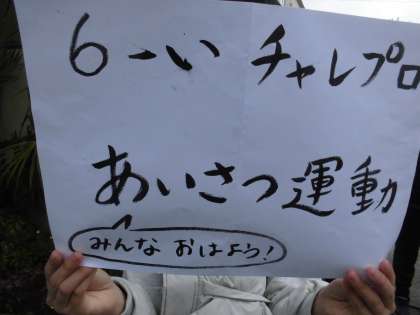 6-い チャレプロ
あいさつ運動
みんな おはよう!